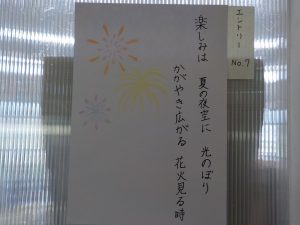 エントリー
No.7
楽しみは 夏の夜空に 光のぼり
かがやき広がる 花火見る時